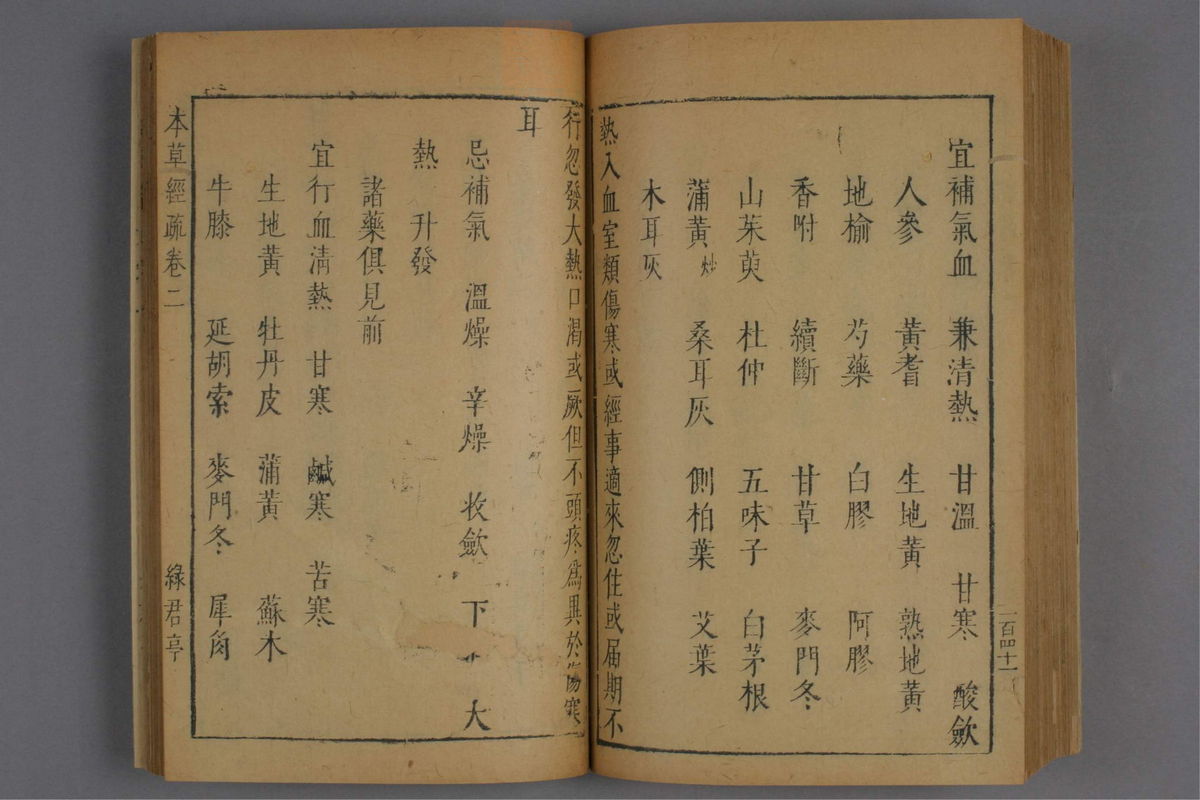 宜補氣血 兼清熱 甘溫 甘寒 酸歛
人參 黃耆 生地黃 熟地黃
地榆 芍藥 白膠 阿膠
香附 續斷 甘草 麥門冬
山茱萸 杜仲 五味子 白茅根
蒲黃炒 桑耳灰 側柏葉 艾葉
木耳灰
熱入血室類傷寒或經事適來忽住或届期不
行忽發大熱口渴或厥但不頭疼爲異於傷寒
耳
忌補氣 溫燥 辛燥 收歛 下 大
熱 升發
諸藥俱見前
宜行血淸熱 甘寒 鹹寒 苦寒
生地黃 牡丹皮 蒲黃 蘇木
牛膝 延胡索 麥門冬 犀角
本草經疏卷二 綠君亭
一百四十一